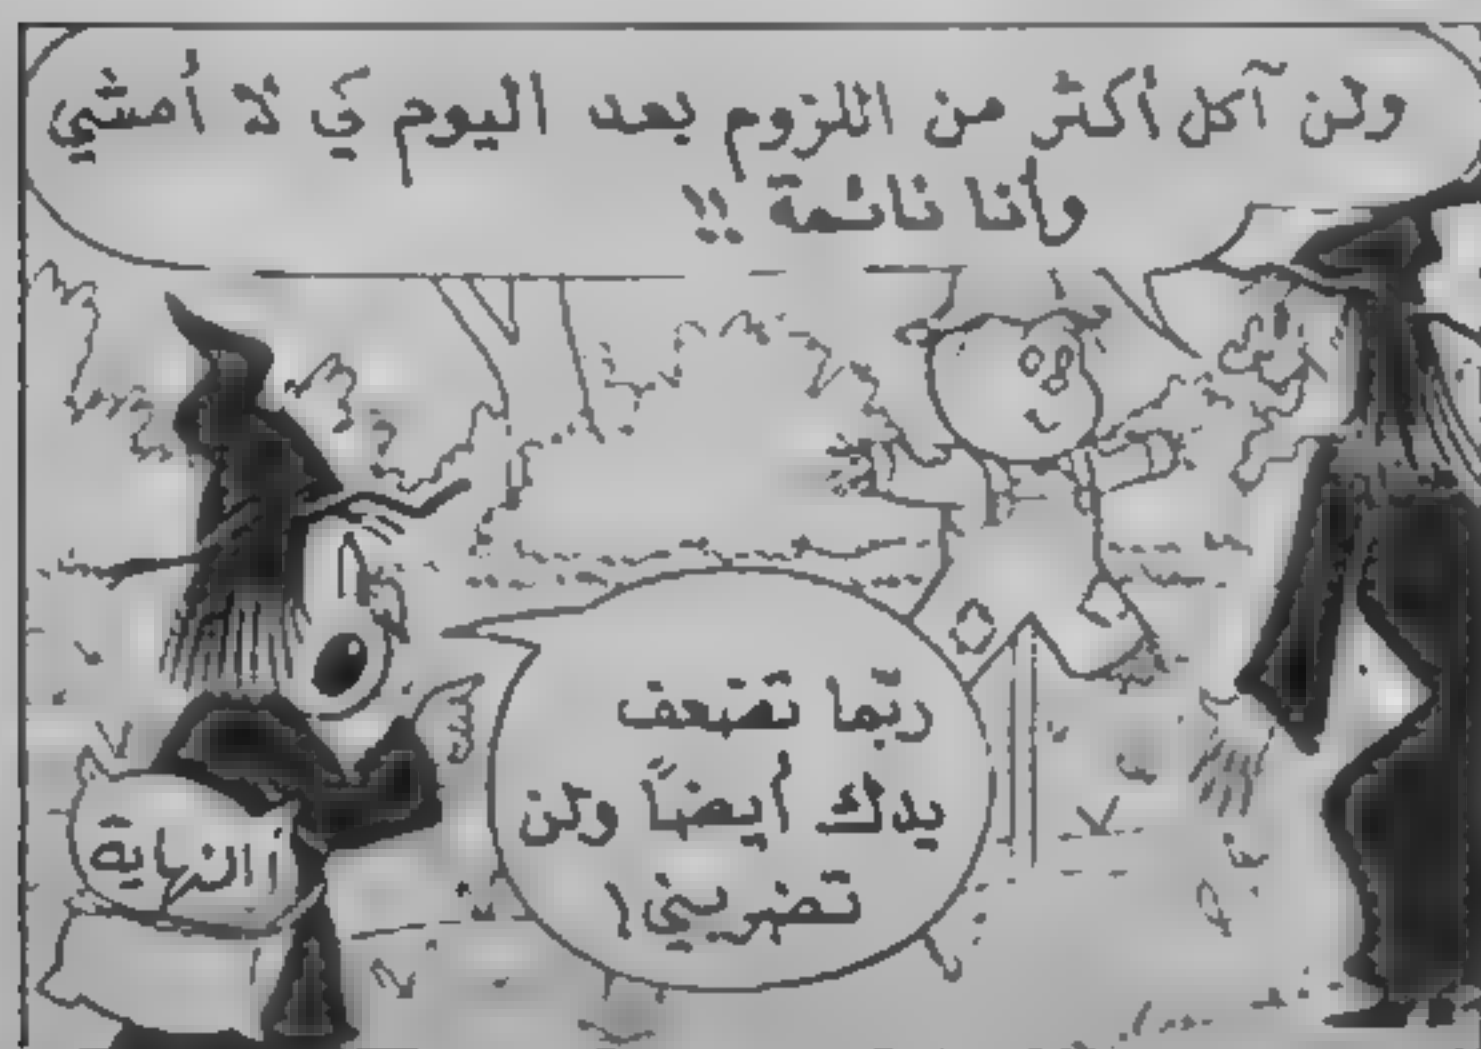 ولن آكل أكثر من اللزوم بعد اليوم كي لا أمشي
وأنا نائمة !!
ربّما تضعف
يدك أيضاً ولن
تضربني!
النهاية